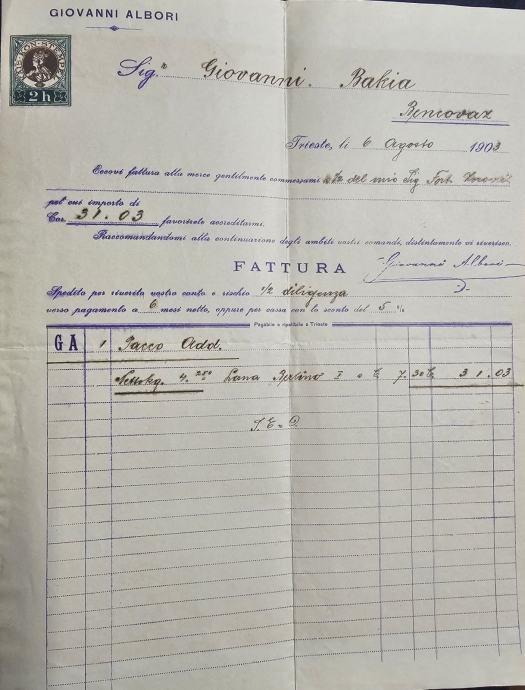 GIOVANNI ALBORI
2 h
Sig.r Giovanni Bakia
Bencovaz
Trieste, li 6 Agosto 1903
Eccovi fattura alla merce gentilmente commessami del mio Sig
pel cui importo di
Cor. 31.03 favorirete accreditarmi.
Raccomandandomi alla continuazione degli ambiti vostri comandi, distintamente vi riverisco.
FATTURA
Giovanni Albori
Spedito per riverito vostro conto e rischio 1/2 diligenza
verso pagamento a 6 mesi netto, oppure per cassa con lo sconto del 5 %
Pagabile e ripetibile a Trieste
G A 1 Pacco Add.
Nettokg. 4.250 Lana Berlino I a C 7.30 31.03
S. E. O.